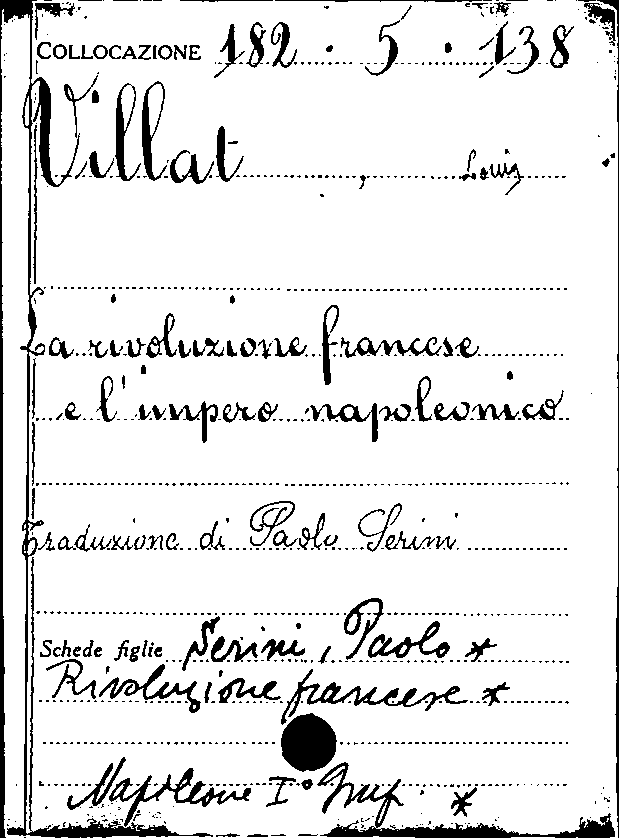 COLLOCAZIONE 182 · 5 · 138
Villat, Louis
La rivoluzione francese
e l'impero napoleonico
Traduzione di Paolo Serini
Schede figlie Serini, Paolo *
Rivoluzione francese *
Napoleone I° Imp. *